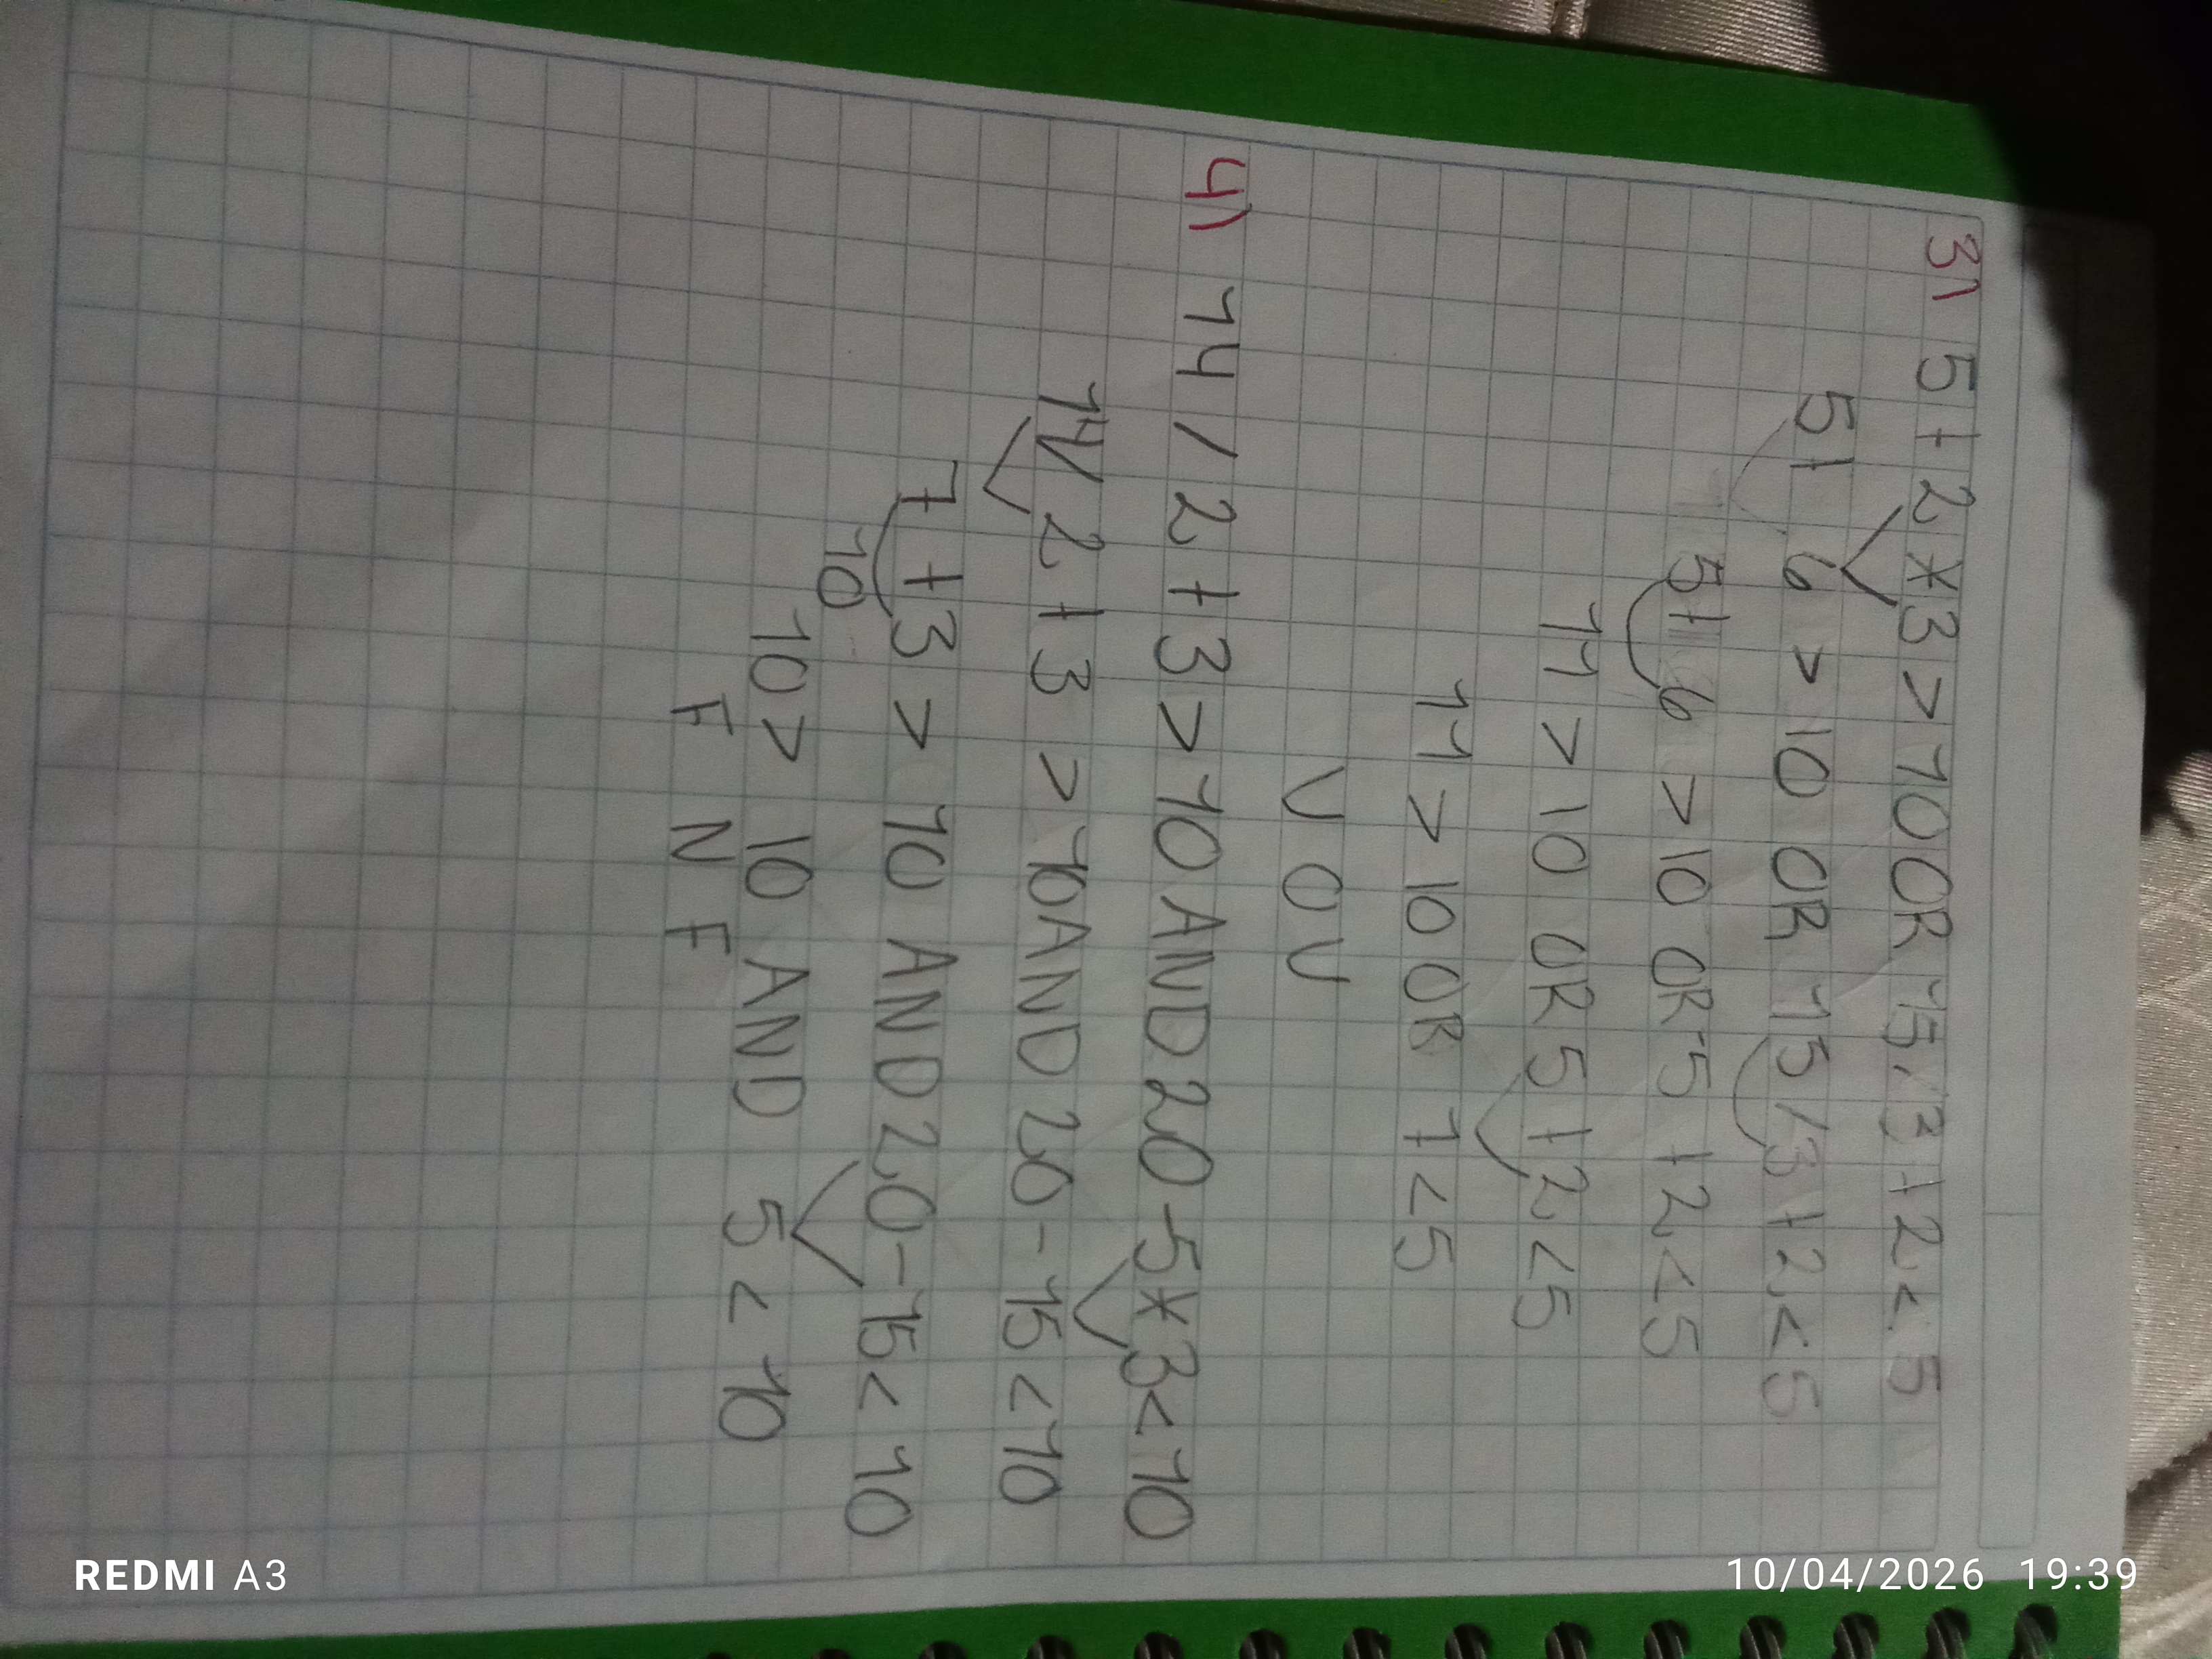 3) 5+2*3>10 OR 15/3+2<5
5+ 6 > 10 OR 15/3+2<5
5+6 >10 OR 5+2<5
11>10 OR 5+2<5
11>10 OR 7<5
V O V
4) 14/2+3>10 AND 20-5*3<10
14/2+3 >10 AND 20-15<10
7+3> 10 AND 20-15<10
10
10> 10 AND 5<10
F N F
REDMI A3
10/04/2026 19:39